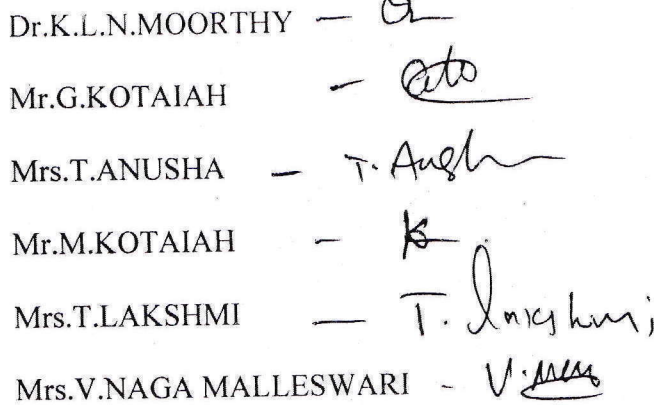 Dr.K.L.N.MOORTHY –
Mr.G.KOTAIAH –
Mrs.T.ANUSHA – T. Anush
Mr.M.KOTAIAH –
Mrs.T.LAKSHMI — T. Lakshmi
Mrs.V.NAGA MALLESWARI -